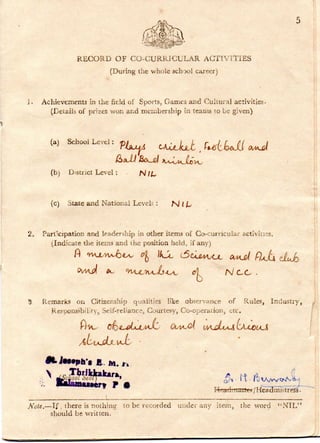 5
RECORD OF CO-CURRICULAR ACTIVITIES
(During the whole school career)
1. Achievements in the field of Sports, Games and Cultural activities.
(Details of prizes won and membership in teams to be given)
(a) School Level : Plays cricket, Football and
Ball Badminton
(b) District Level : NIL
(c) State and National Level : NIL
2. Participation and leadership in other items of Co-curricular activities.
(Indicate the items and the position held, if any)
A member of the Science and Arts club
and a member of NCC.
3 Remarks on Citizenship qualities like observance of Rules, Industry,
Responsibility, Self-reliance, Courtesy, Co-operation, etc.
An obedient and industrious
student
St. Joseph's
Thrikkakara,
(School Seal)
Kalamassery P O
Headmaster/Headmistress.
Note.—If there is nothing to be recorded under any item, the word "NIL"
should be written.